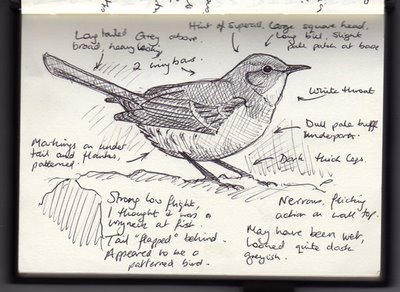 Hint of Supercil. Large square head.
Long tailed Grey above.
broad, heavy
Long bill, slight
pale patch at base
2 wing bars.
White throat
Dull pale buff
underparts.
Markings on under
tail and flanks.
patterned.
Dark thick legs.
Strong low flight,
I thought it was a
wryneck at first.
Tail "flapped" behind.
Appeared to be a
patterned bird.
Nervous, flicking
action on wall top.
May have been wet,
looked quite dark
greyish.